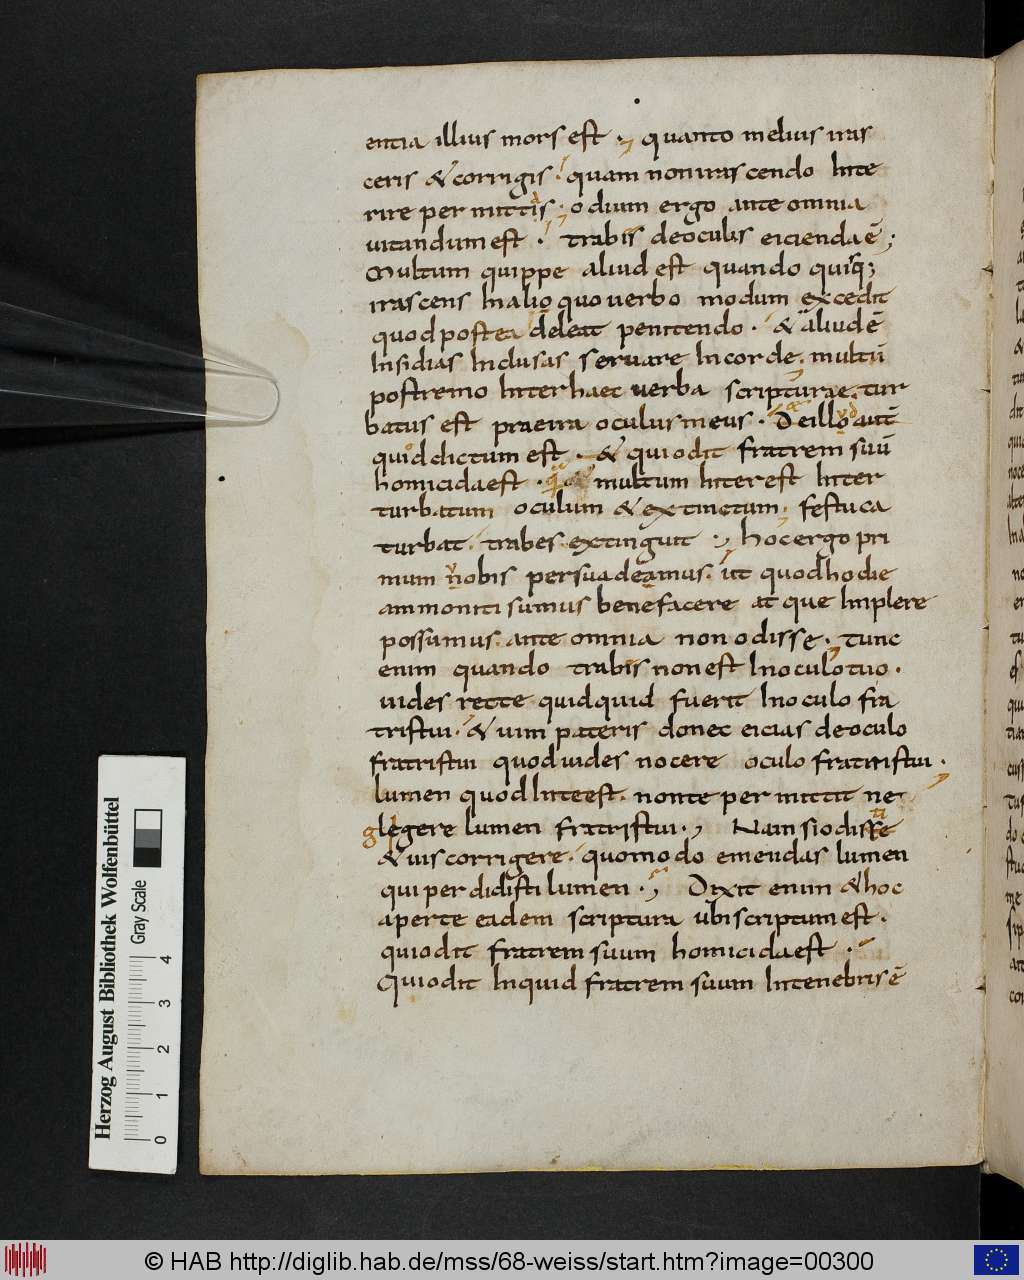 entia illius mors est . quanto melius iras
ceris & corrigis . quam non irascendo inte
rire permittis ; odium ergo ante omnia
uitandum est . trabis de oculis eicienda ē ;
Multum quippe aliud est quando quisq;
irascens in alio quo uerbo modum excedit
quod postea deleat penitendo . & aliud ē
insidias inclusas seruare in corde . multū
postremo inter haec uerba scripturae . tur
batus est prae ira oculus meus . De illo aut̄
quod dictum est . & qui odit fratrem suū
homicida est . multum interest inter
turbatum oculum & extinctum . festuca
turbat . trabes extinguit . hoc ergo pri
mum nobis persuadeamus . ut quod hodie
ammoniti sumus bene facere atque implere
possumus . ante omnia non odisse . tunc
enim quando trabis non est in oculo tuo .
uides recte quidquid fuerit in oculo fra
tris tui . & uim pateris donec eicias de oculo
fratris tui quod uides nocere oculo fratris tui .
lumen quod inte est . non te permittit ne
glegere lumen fratris tui . Nam si odisse
& uis corrigere . quomodo emendas lumen
qui perdidisti lumen . Dixit enim & hoc
aperte eadem scriptura ubi scriptum est .
qui odit fratrem suum homicida est .
Qui odit inquid fratrem suum in tenebris ē
Herzog August Bibliothek Wolfenbüttel
Gray Scale
0 1 2 3 4
© HAB http://diglib.hab.de/mss/68-weiss/start.htm?image=00300